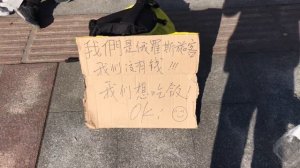 我們是俄羅斯旅客
我们没有钱!!!
我们想吃飯!
OK!